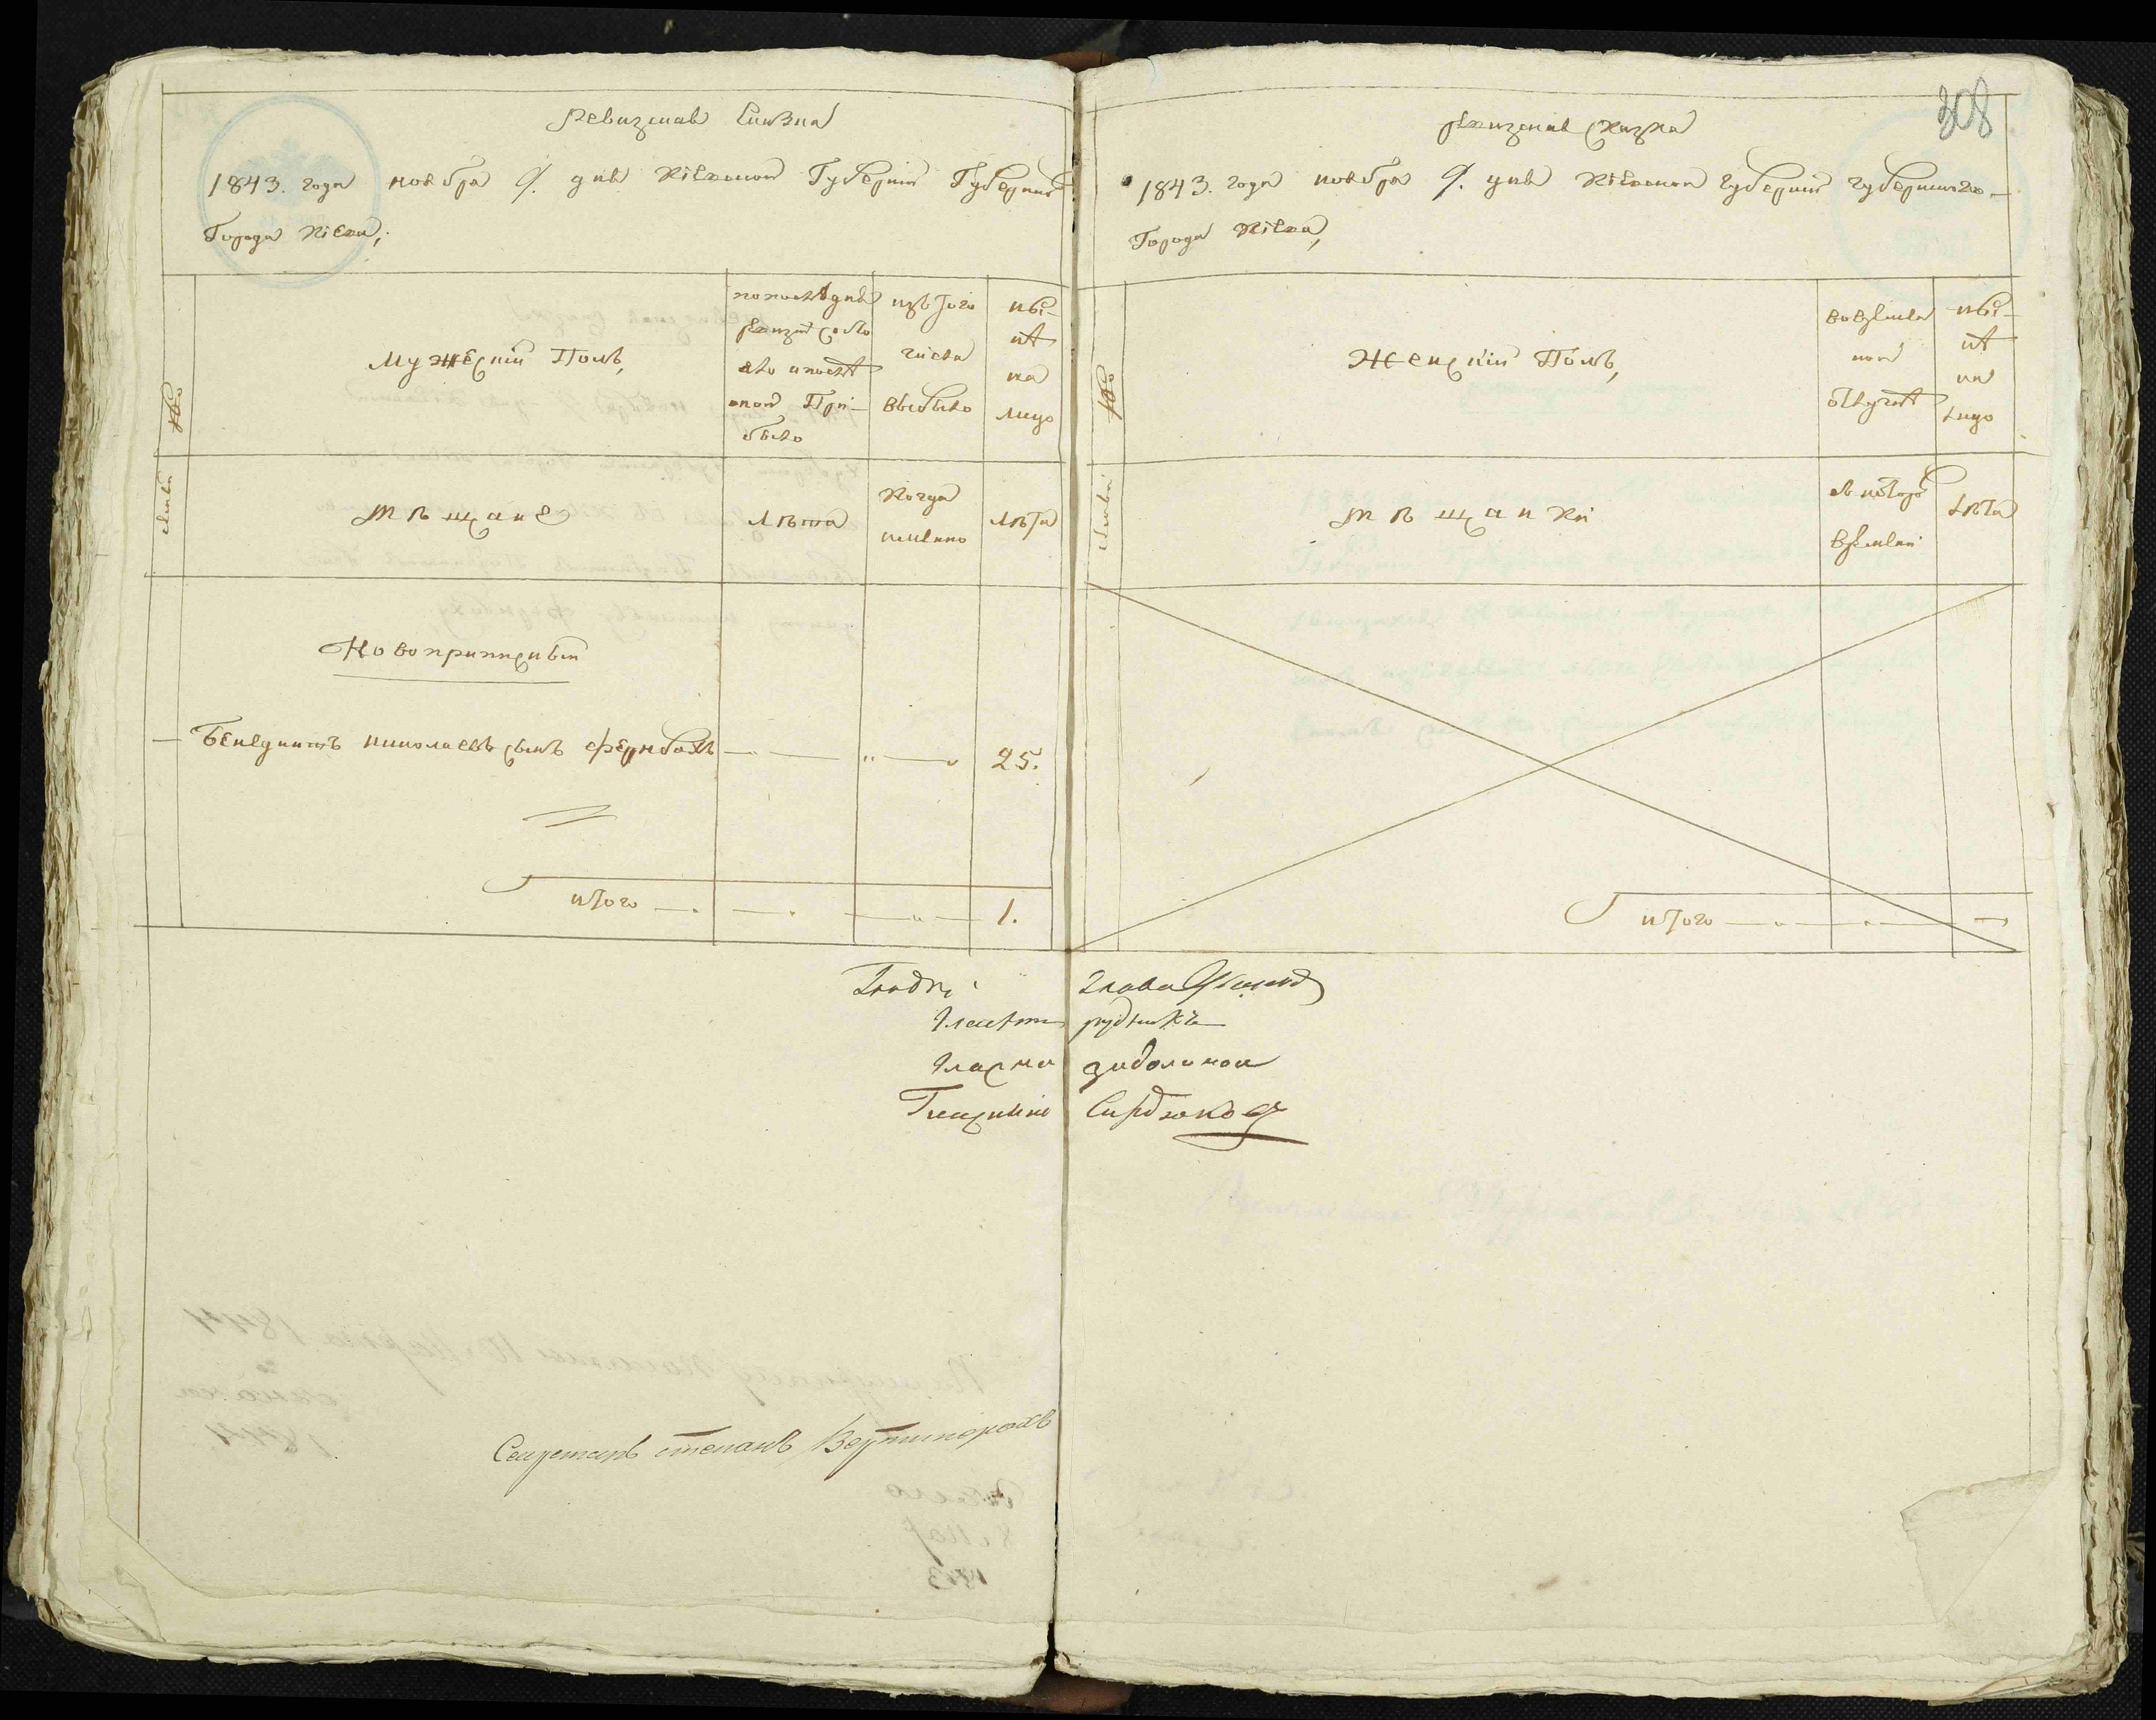 Ревизская Сказка
1843. года ноября 9. дня Кіевской Губерніи Губернска
Города Кіева,
№
семьи
Мужескій Полъ,
по послѣдней
ревизіи состо
яло и послѣ
оной При-
было
изъ того
числа
выбыло
ны-
нѣ
на
лицо
Мѣщане
Лѣта
Когда
имянно
Лѣта
Новоприписный
Бенедиктъ николаевъ сынъ фернбахъ — „ — 25.
итого — 1.
308
Ревизская Сказка
1843. года ноября 9. дня Кіевской Губерніи губернскаго
Города Кіева,
№
семьи
Женскій Полъ,
во времен
ной
отлучкѣ
ны-
нѣ
на
лицо
Мѣщанки
съ котораго
времени
Лѣта
итого —
Градскі глава
Гласный рудникъ
Гласны заболоной
Гласный Сирдюковъ
Секретарь степанъ Вертипорохъ